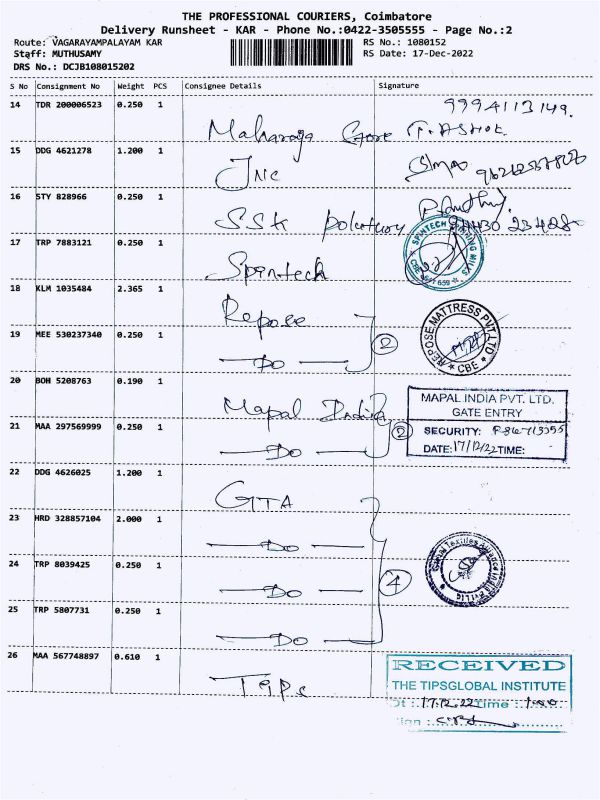 THE PROFESSIONAL COURIERS, Coimbatore
Delivery Runsheet - KAR - Phone No.:0422-3505555 - Page No.:2
Route: VAGARAYAMPALAYAM KAR RS No.: 1080152
Staff: MUTHUSAMY RS Date: 17-Dec-2022
DRS No.: DCJB108015202
S No Consignment No Weight PCS Consignee Details Signature
14 TDR 200006523 0.250 1 9994113149.
Maharaja
15 DDG 4621278 1.200 1
JNC
16 STY 828966 0.250 1
SSK
17 TRP 7883121 0.250 1 SPINTECH
Spintech CBE
18 KLM 1035484 2.365 1
Repose
19 MEE 530237340 0.250 1 REPOSE MATTRESS PVT.LTD
DO 2 CBE
20 BOH 5208763 0.190 1 MAPAL INDIA PVT. LTD.
Mapal India GATE ENTRY
21 MAA 297569999 0.250 1 SECURITY:
DO 2 DATE: 17/12/22 TIME:
22 DDG 4626025 1.200 1
GTA
23 HRD 328857104 2.000 1
DO
24 TRP 8039425 0.250 1
DO 4
25 TRP 5807731 0.250 1
DO
26 MAA 567748897 0.610 1 RECEIVED
Tips THE TIPSGLOBAL INSTITUTE
Dt : 17.12.22 Time :
Sign :